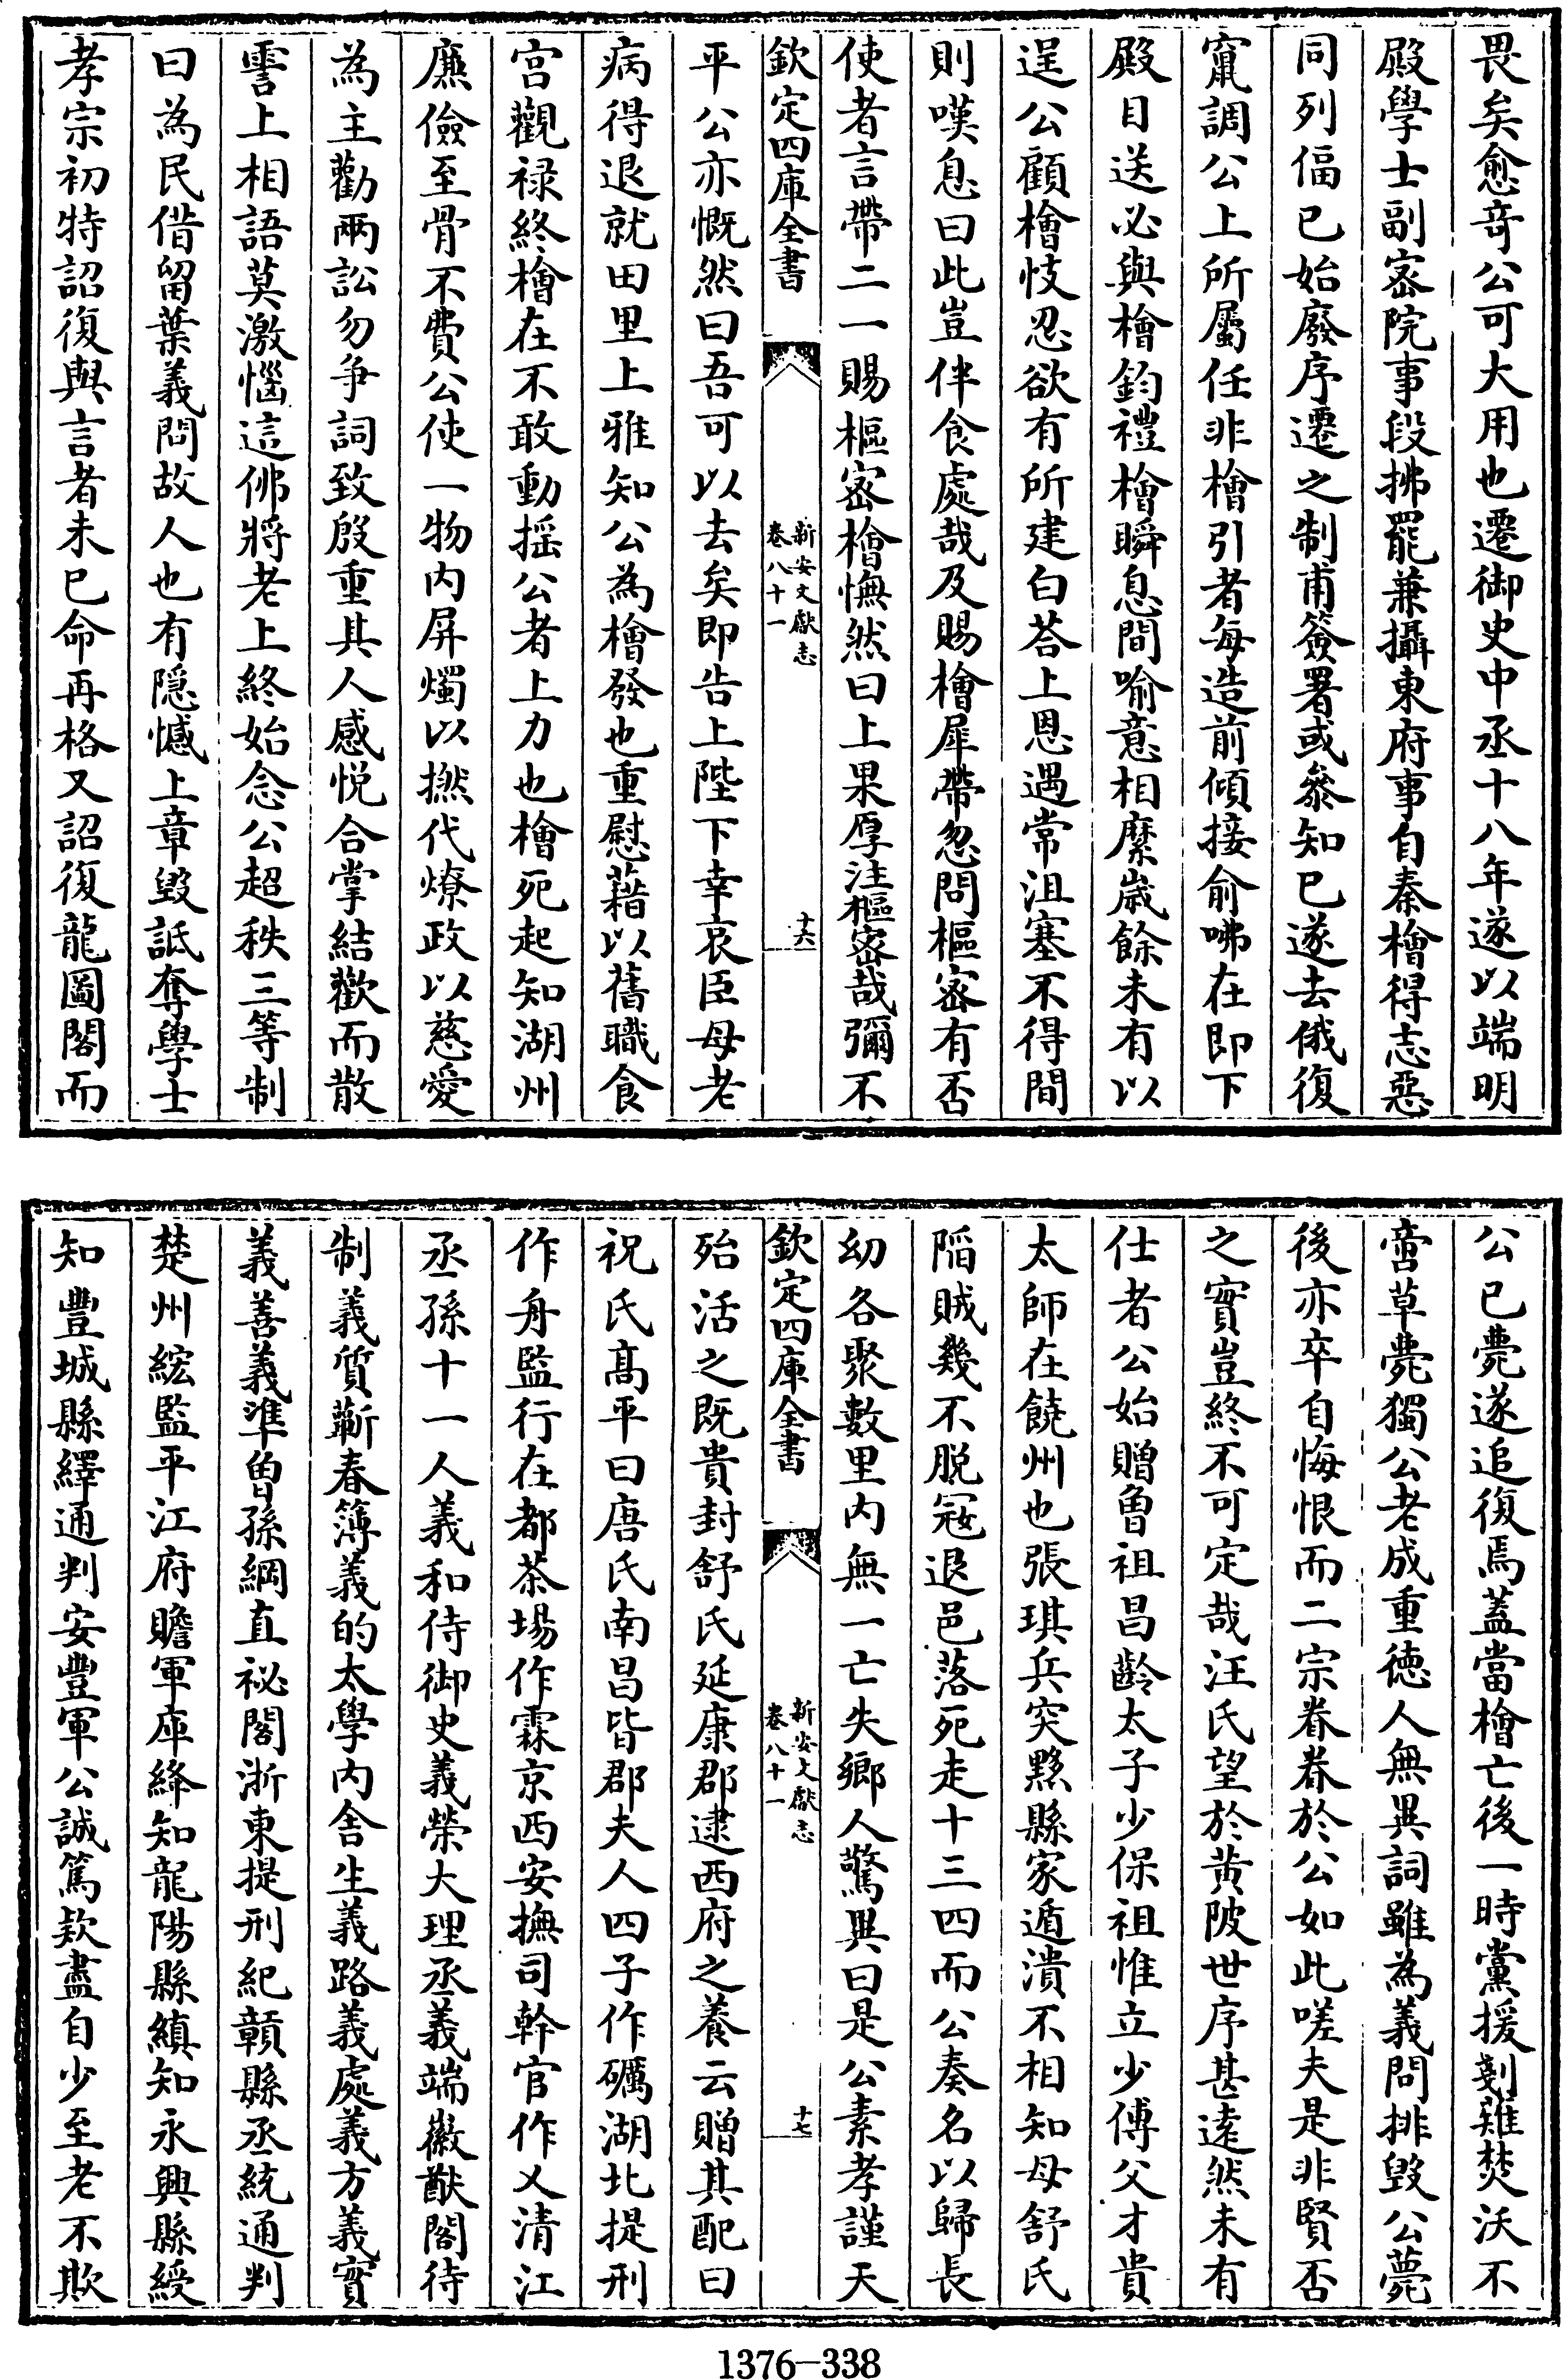 畏矣愈竒公可大用也遷御史中丞十八年遂以端明
殿學士副宻院事段拂罷兼攝東府事自秦檜得志惡
同列偪已始廢序遷之制甫簽署或叅知已遂去俄復
竄調公上所屬任非檜引者每造前傾接俞咈在即下
殿目送必與檜鈞禮檜瞬息間喻意相縻歳餘未有以
逞公顧檜忮忍欲有所建白荅上恩遇常沮塞不得間
則嘆息曰此豈伴食處哉及賜檜犀帶忽問樞宻有否
使者言帶二一賜樞宻檜憮然曰上果厚注樞宻哉彌不
欽定四庫全書
新安文獻志
卷八十一
十六
平公亦慨然曰吾可以去矣即告上陛下幸哀臣母老
病得退就田里上雅知公為檜發也重慰藉以舊職食
宫觀禄終檜在不敢動揺公者上力也檜死起知湖州
廉儉至骨不費公使一物内屏燭以撚代燎政以慈愛
為主勸兩訟勿争詞致殷重其人感悦合掌結歡而散
霅上相語莫激惱這佛將老上終始念公超秩三等制
曰為民借留葉義問故人也有隠憾上章毁詆奪學士
孝宗初特詔復與言者未已命再格又詔復龍圖閣而
公已薨遂追復焉葢當檜亡後一時黨援剗雉焚沃不
啻草薨獨公老成重徳人無異詞雖為義問排毁公薨
後亦卒自悔恨而二宗眷眷於公如此嗟夫是非賢否
之實豈終不可定哉汪氏望於黄陂世序甚逺然未有
仕者公始贈曾祖昌齡太子少保祖惟立少傅父才貴
太師在饒州也張琪兵突黟縣家遁潰不相知母舒氏
陷賊幾不脱冦退邑落死走十三四而公奏名以歸長
幼各聚數里内無一亡失鄉人驚異曰是公素孝謹天
欽定四庫全書
新安文獻志
卷八十一
十七
殆活之既貴封舒氏延康郡逮西府之養云贈其配曰
祝氏髙平曰唐氏南昌皆郡夫人四子作礪湖北提刑
作舟監行在都茶場作霖京西安撫司幹官作乂清江
丞孫十一人義和侍御史義榮大理丞義端徽猷閣待
制義質蘄春簿義的太學内舎生義路義處義方義實
義善義準曾孫綱直祕閣浙東提刑紀贑縣丞統通判
楚州綋監平江府贍軍庫絳知龍陽縣縝知永興縣綬
知豐城縣繹通判安豐軍公誠篤欵盡自少至老不欺
1376-338